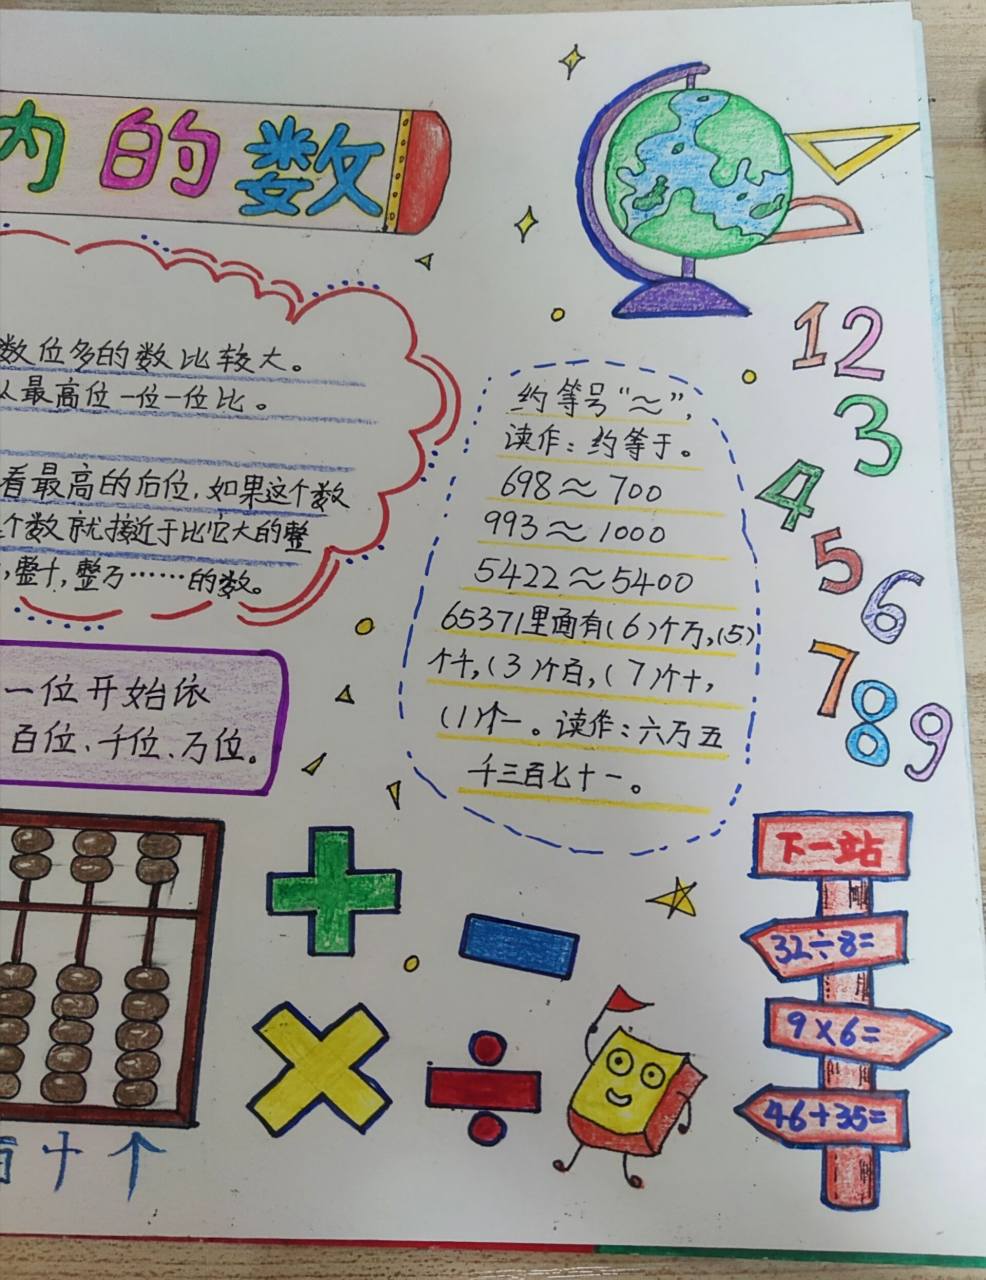 内的数
数位多的数比较大。
从最高位一位一位比。
看最高的后位,如果这个数
个数就接近于比它大的整
,整十,整万……的数。
一位开始依
百位、千位、万位。
百十个
约等号“≈”,
读作:约等于。
698≈700
993≈1000
5422≈5400
65371里面有(6)个万,(5)
个千,(3)个百,(7)个十,
(1)个一。读作:六万五
千三百七十一。
12
3
4
5
6
7
8
9
下一站
32÷8=
9×6=
46+35=